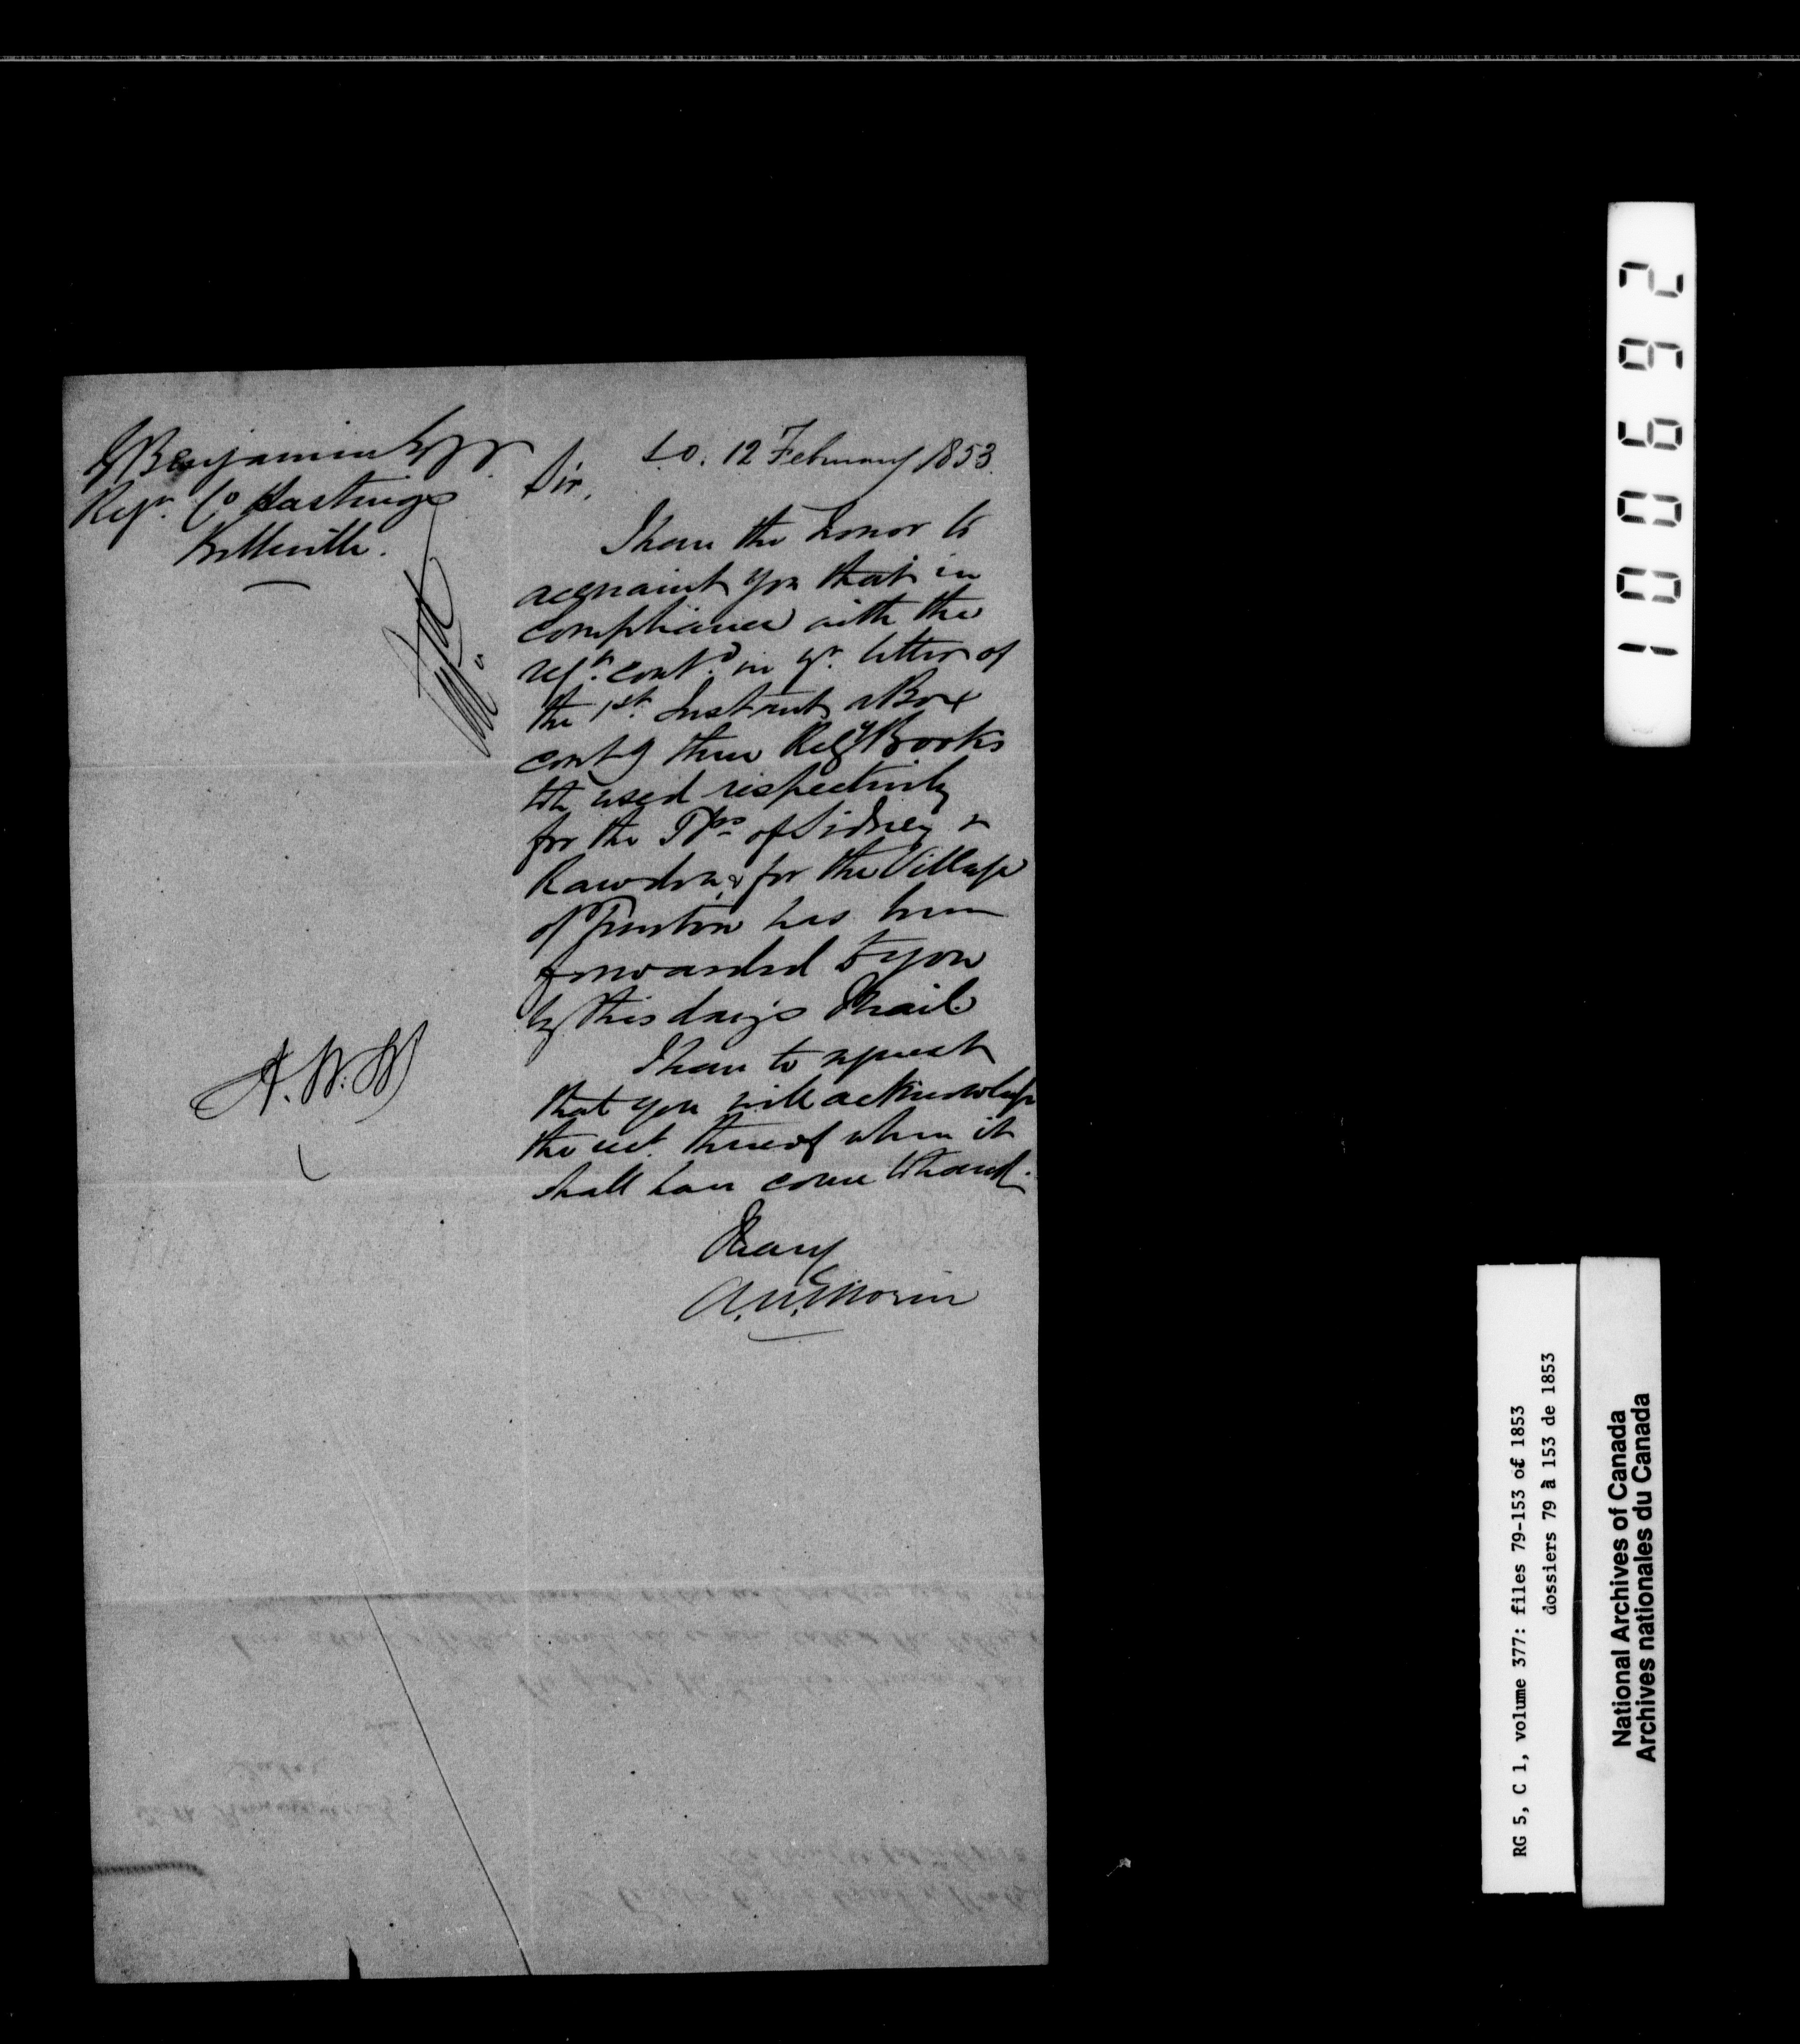 G Benjamin Esqr
Regr. Co Hastings
Belleville.
S.O. 12 February 1853.
Sir,
I have the honor to
acquaint you that in
compliance with the
reqt. contd. in yr. letter of
the 1st. Instant, a Box
contg three Regy Books
to be used respectively
for the Tps of Sidney &
Rawdon, & for the Village
of Trenton has been
forwarded to you
by this day's Mail
I have to request
that you will acknowledge
the rect. thereof when it
shall have come to hand.
I have
A.N. Morin
100692
RG 5, C 1, volume 377: files 79-153 of 1853
dossiers 79 à 153 de 1853
National Archives of Canada
Archives nationales du Canada